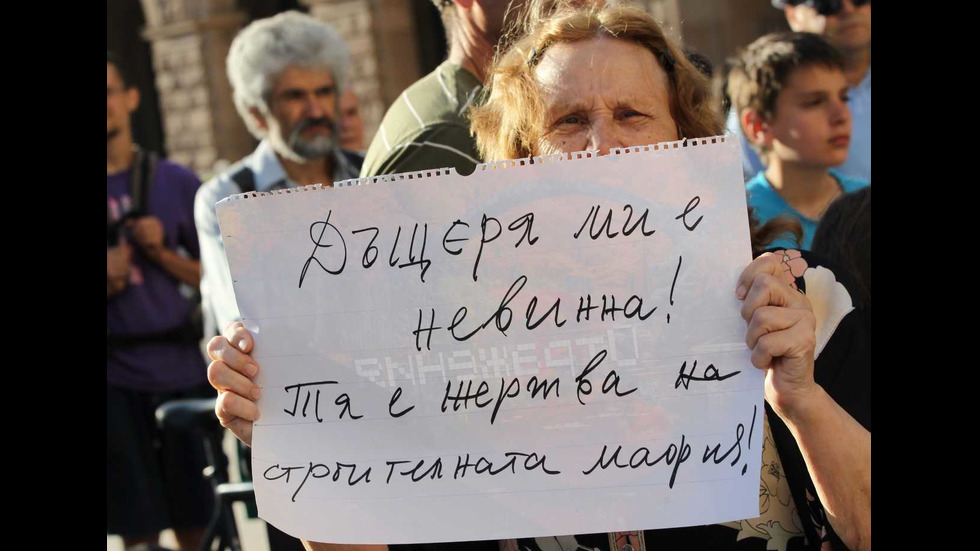 Дъщеря ми е
невинна!
Тя е жертва на
строителната мафия!